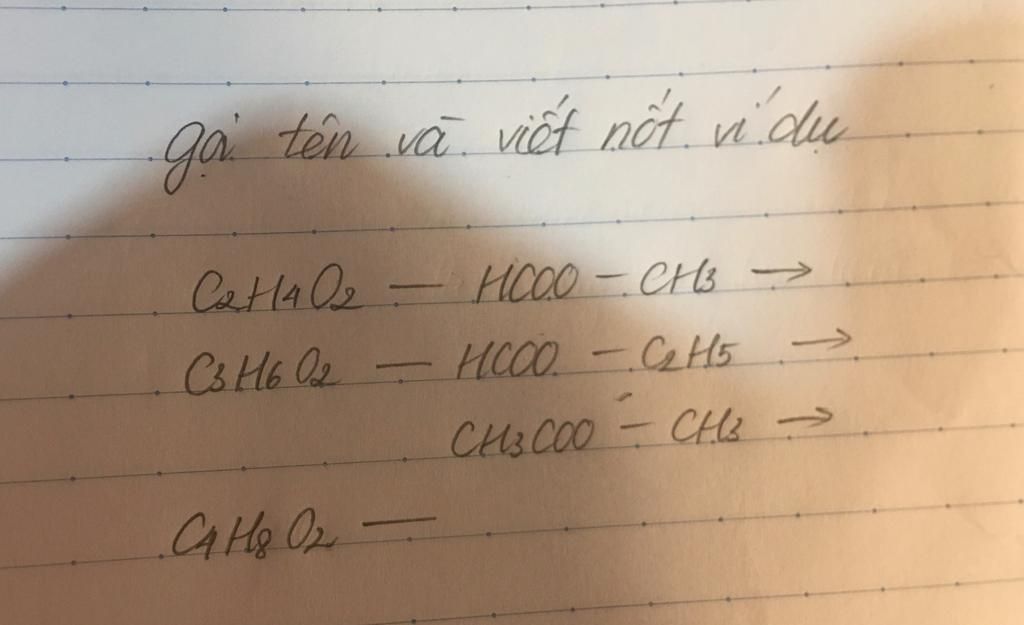 gọi tên và viết nốt ví dụ
C2H4O2 — HCOO - CH3 →
C3H6O2 — HCOO - C2H5 →
CH3COO - CH3 →
C4H8O2 —